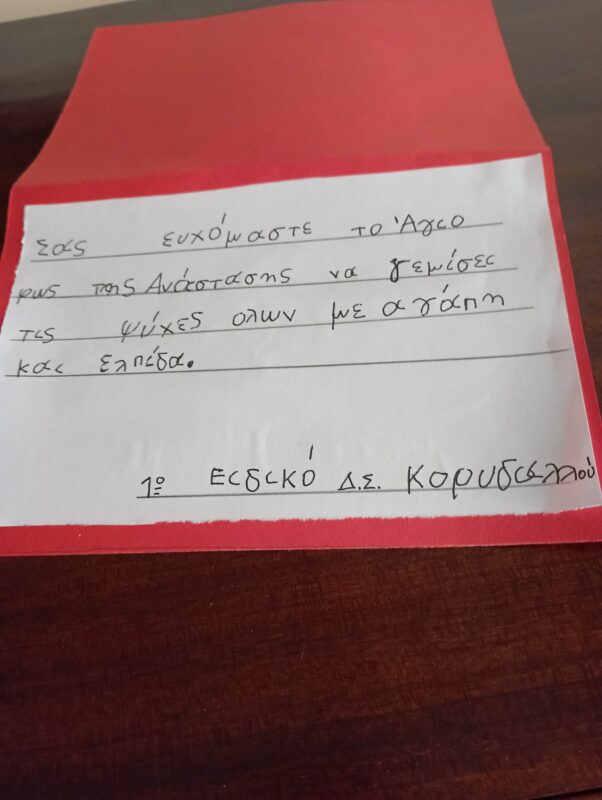 Σας ευχόμαστε το Άγιο
φως της Ανάστασης να γεμίσει
τις ψύχες ολων με αγάπη
και ελπίδα.
1º Ειδικό Δ.Σ. Κορυδαλλού